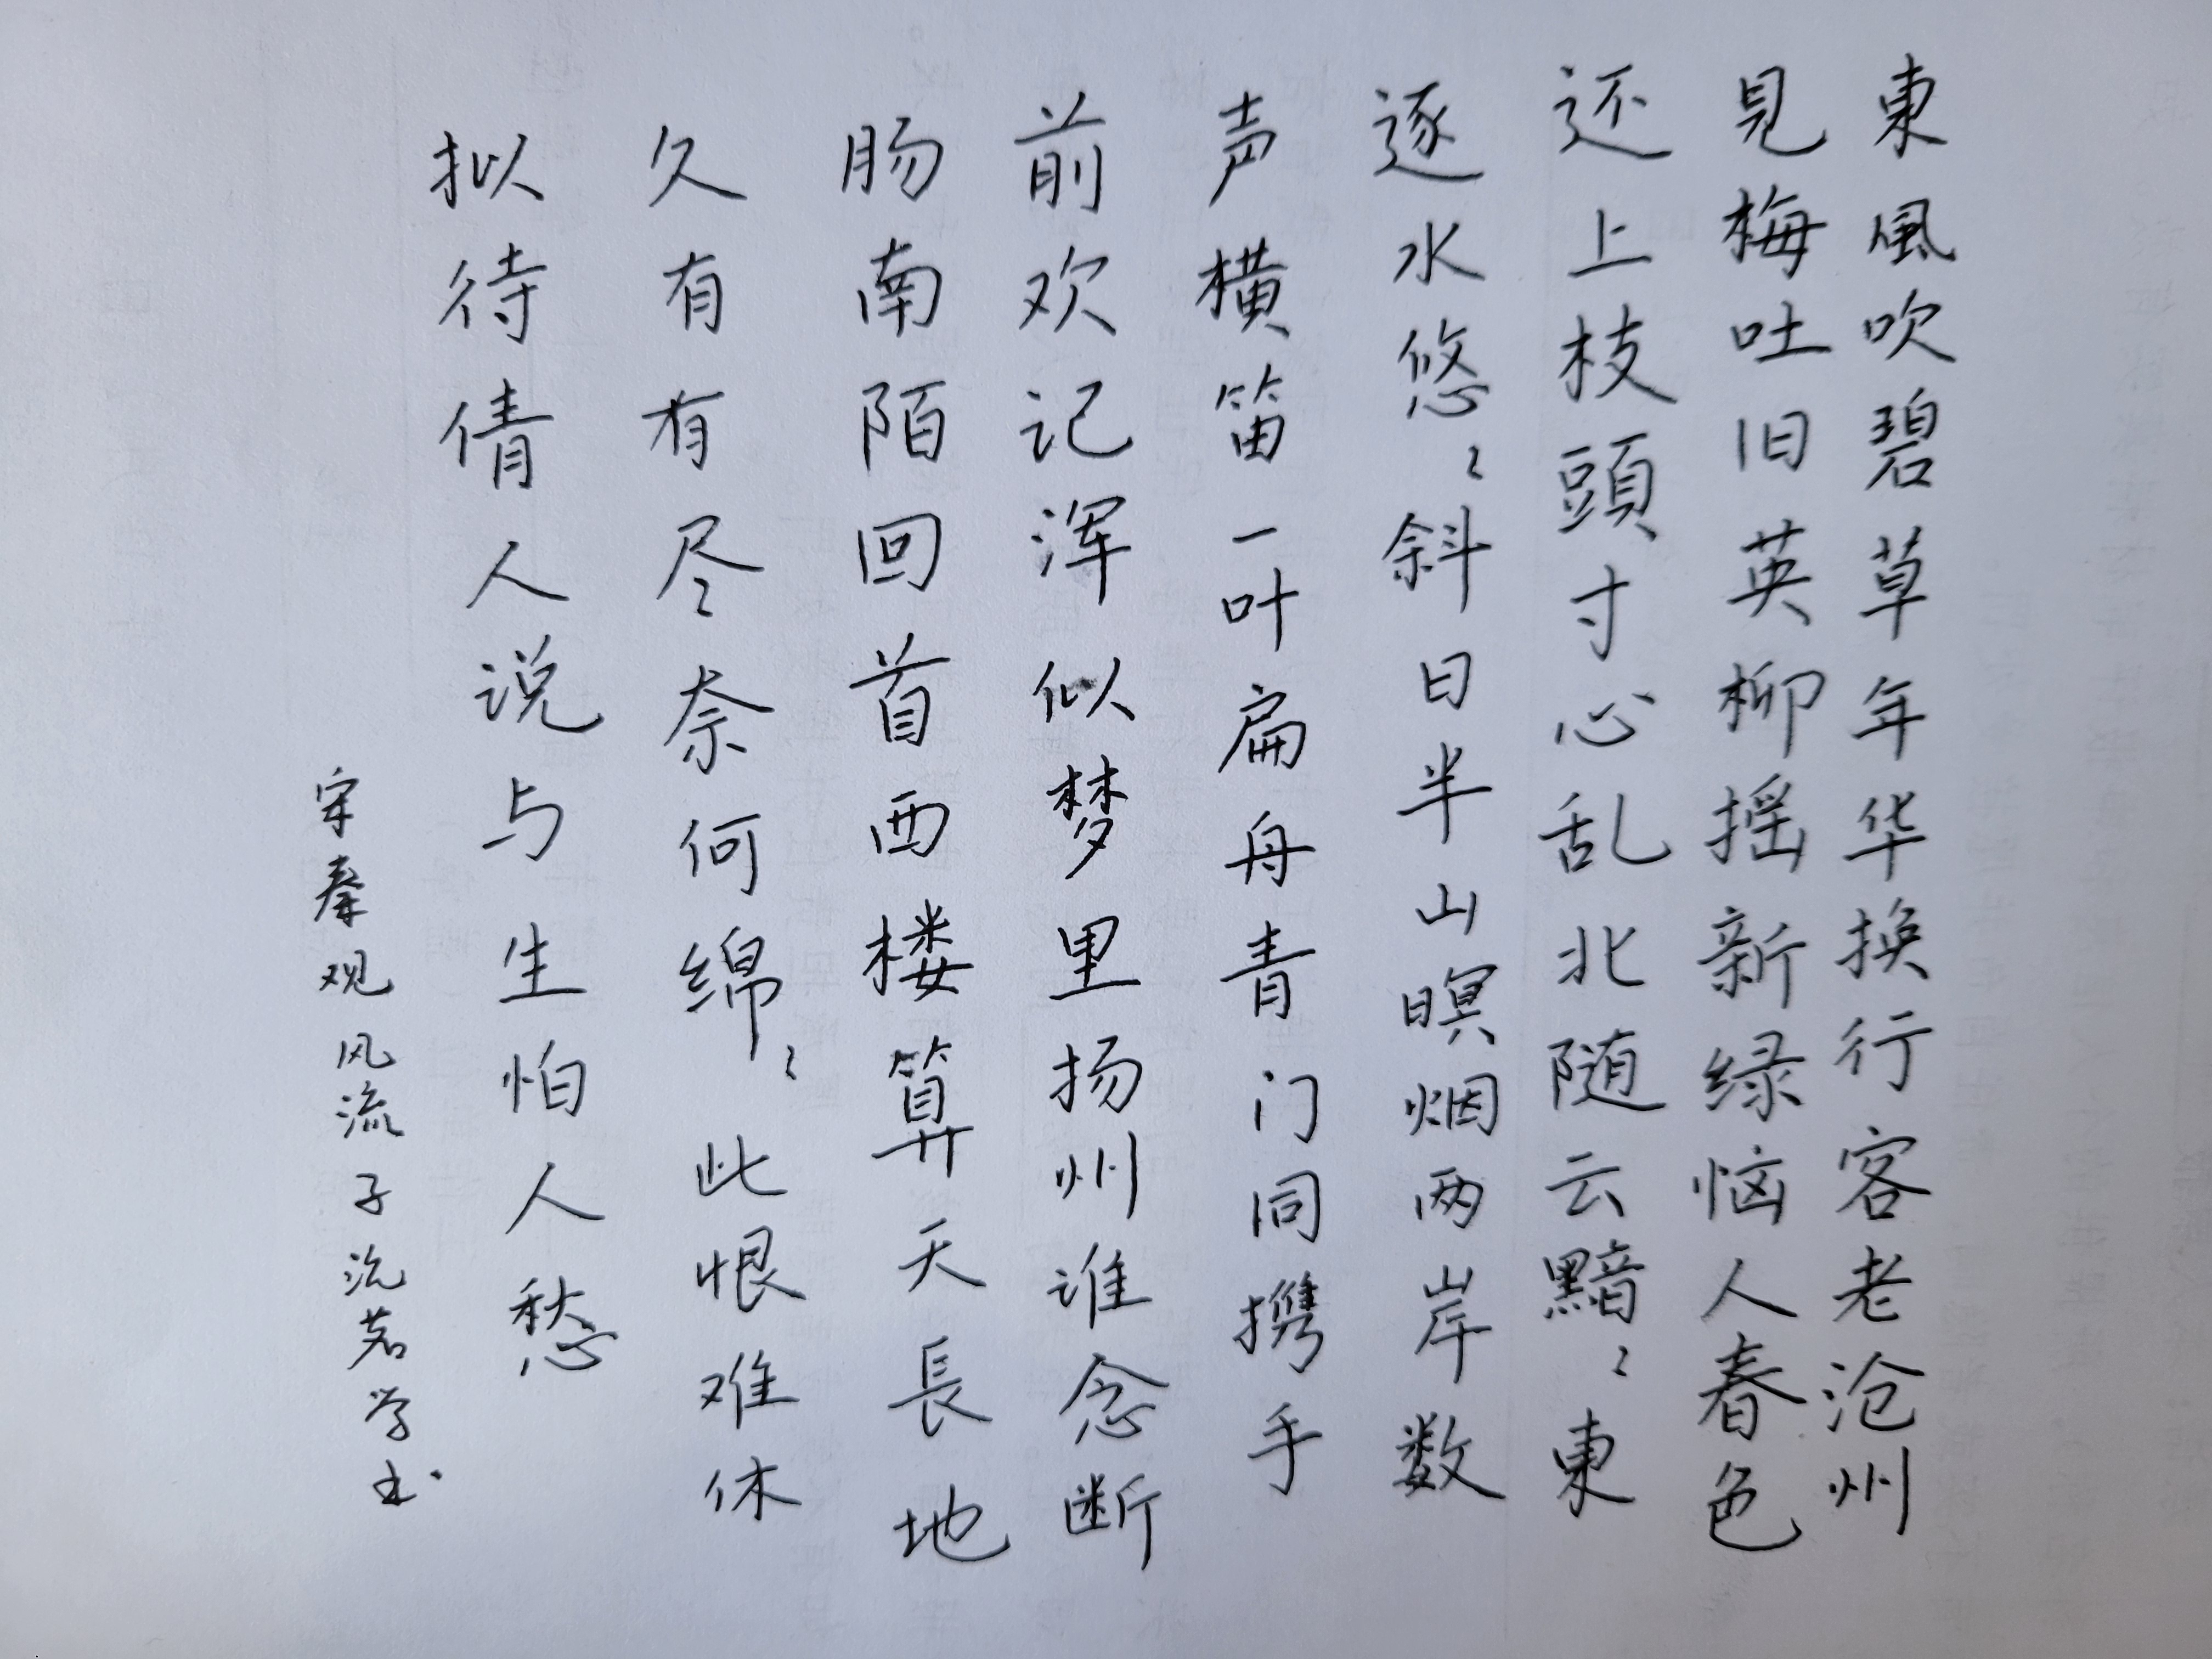 東風吹碧草年华换行客老沧州
見梅吐旧英柳摇新绿恼人春色
还上枝頭寸心乱北随云黯〻東
逐水悠〻斜日半山暝烟两岸数
声横笛一叶扁舟青门同携手
前欢记浑似梦里扬州谁念断
肠南陌回首西楼算天長地
久有有尽奈何绵〻此恨难休
拟待倩人说与生怕人愁
宋秦观风流子沇茗学书